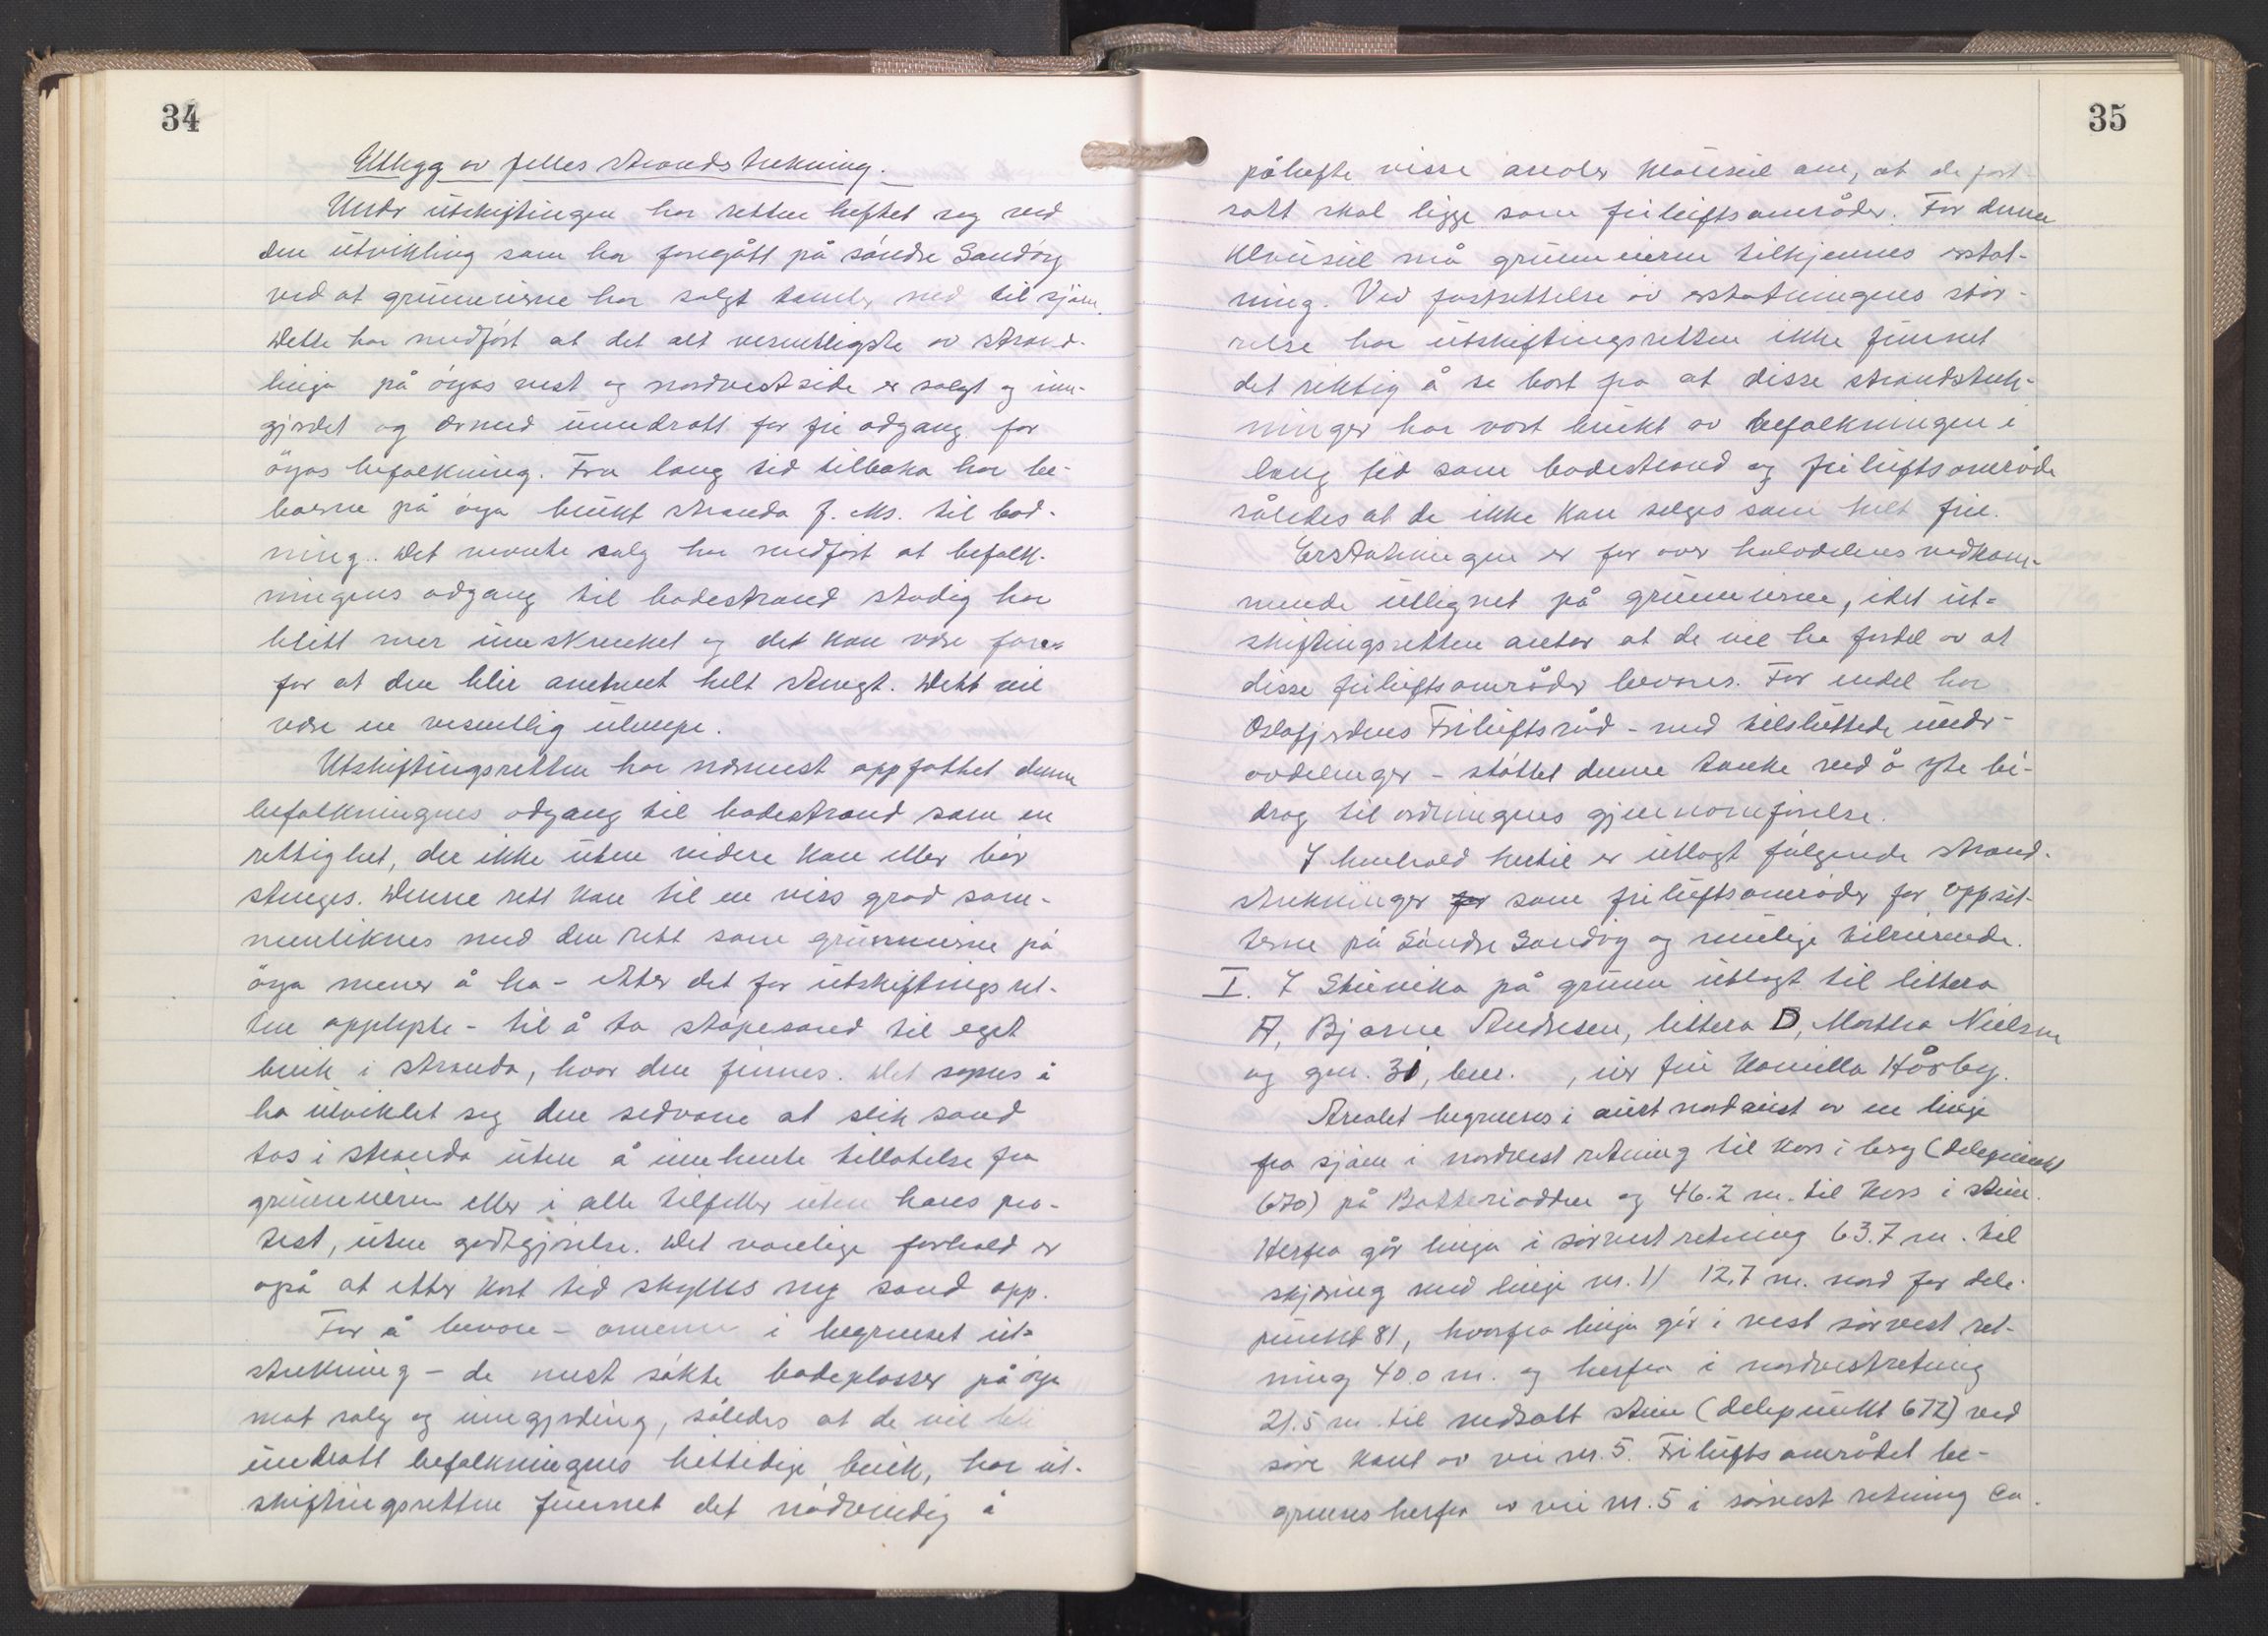 34
Utlegg av felles strandstrekning.
Under utskiftingen har retten heftet seg ved
den utvikling som har foregått på søndre Sandøy
ved at grunneierne har solgt tomter ned til sjøen.
Dette har medført at det alt vesentligste av strand-
linja på øyas vest og nordvestside er solgt og inn-
gjerdet og dermed unndratt for fri adgang for
øyas befolkning. Fra lang tid tilbake har be-
boerne på øya brukt stranda f. eks. til bad-
ning. Det nevnte salg har medført at befolk-
ningens adgang til badestrand stadig har
blitt mer innskrenket og det kan være fare
for at den blir omtrent helt stengt. Dette vil
være en vesentlig ulempe.
Utskiftingsretten har nærmest oppfattet denne
befolkningens adgang til badestrand som en
rettighet, der ikke uten videre kan eller bør
stenges. Denne rett kan til en viss grad sam-
menliknes med den rett som grunneierne på
øya mener å ha - etter det for utskiftingsret-
ten opplyste - til å ta støpesand til eget
bruk i stranda, hvor den finnes. Det synes å
ha utviklet seg den sedvane at slik sand
tas i stranda uten å innhente tillatelse fra
grunneieren eller i alle tilfeller uten hans pro-
test, uten godtgjørelse. Det vanlige forhold er
også at etter kort tid skylles ny sand opp.
For å bevare - om enn i begrenset ut-
strekning - de mest søkte badeplasser på øya
mot salg og inngjerding, således at de vil bli
unndratt befolkningens hittidige bruk, har ut-
skiftingsretten funnet det nødvendig å
35
påhefte visse arealer klausul om, at de fort-
satt skal ligge som friluftsområder. For denne
klausul må grunneierne tilkjennes erstat-
ning. Ved fastsettelse av erstatningens stør-
relse har utskiftingsretten ikke funnet
det riktig å se bort fra at disse strandstrek-
ninger har vært brukt av befolkningen i
lang tid som badestrand og friluftsområde
således at de ikke kan selges som helt frie.
Erstatningen er for over halvdelens vedkom-
mende utlignet på grunneierne, idet ut-
skiftingsretten antar at de vil ha fordel av at
disse friluftsområder bevares. For endel har
Oslofjordens Friluftsråd - med tilsluttede under-
avdelinger - støttet denne tanke ved å yte bi-
drag til ordningens gjennomførelse.
I henhold hertil er utlagt følgende strand-
strekninger for som friluftsområder for oppsit-
terne på Søndre Sandøy og mulige tilreisende.
I. I Stuevika på grunn utlagt til littera
A, Bjarne Andresen, littera D, Martha Nielsen
og gnr. 31, bnr. , eier fru Kamilla Hårby.
Arealet begrenses i aust nordaust av en linje
fra sjøen i nordvest retning til kors i berg (delepunkt
670) på Batteriodden og 46.2 m. til kors i stein.
Herfra går linja i sørvest retning 63.7 m. til
skjæring med linje nr. 11 12.7 m. nord for dele-
punkt 81, hvorfra linja går i vest sørvest ret-
ning 40.0 m. og herfra i nordvestretning
21.5 m. til nedsatt stein (delepunkt 672) ved
søre kant av vei nr. 5. Friluftsområdet be-
grenses herfra av vei nr. 5 i sørvest retning ca.